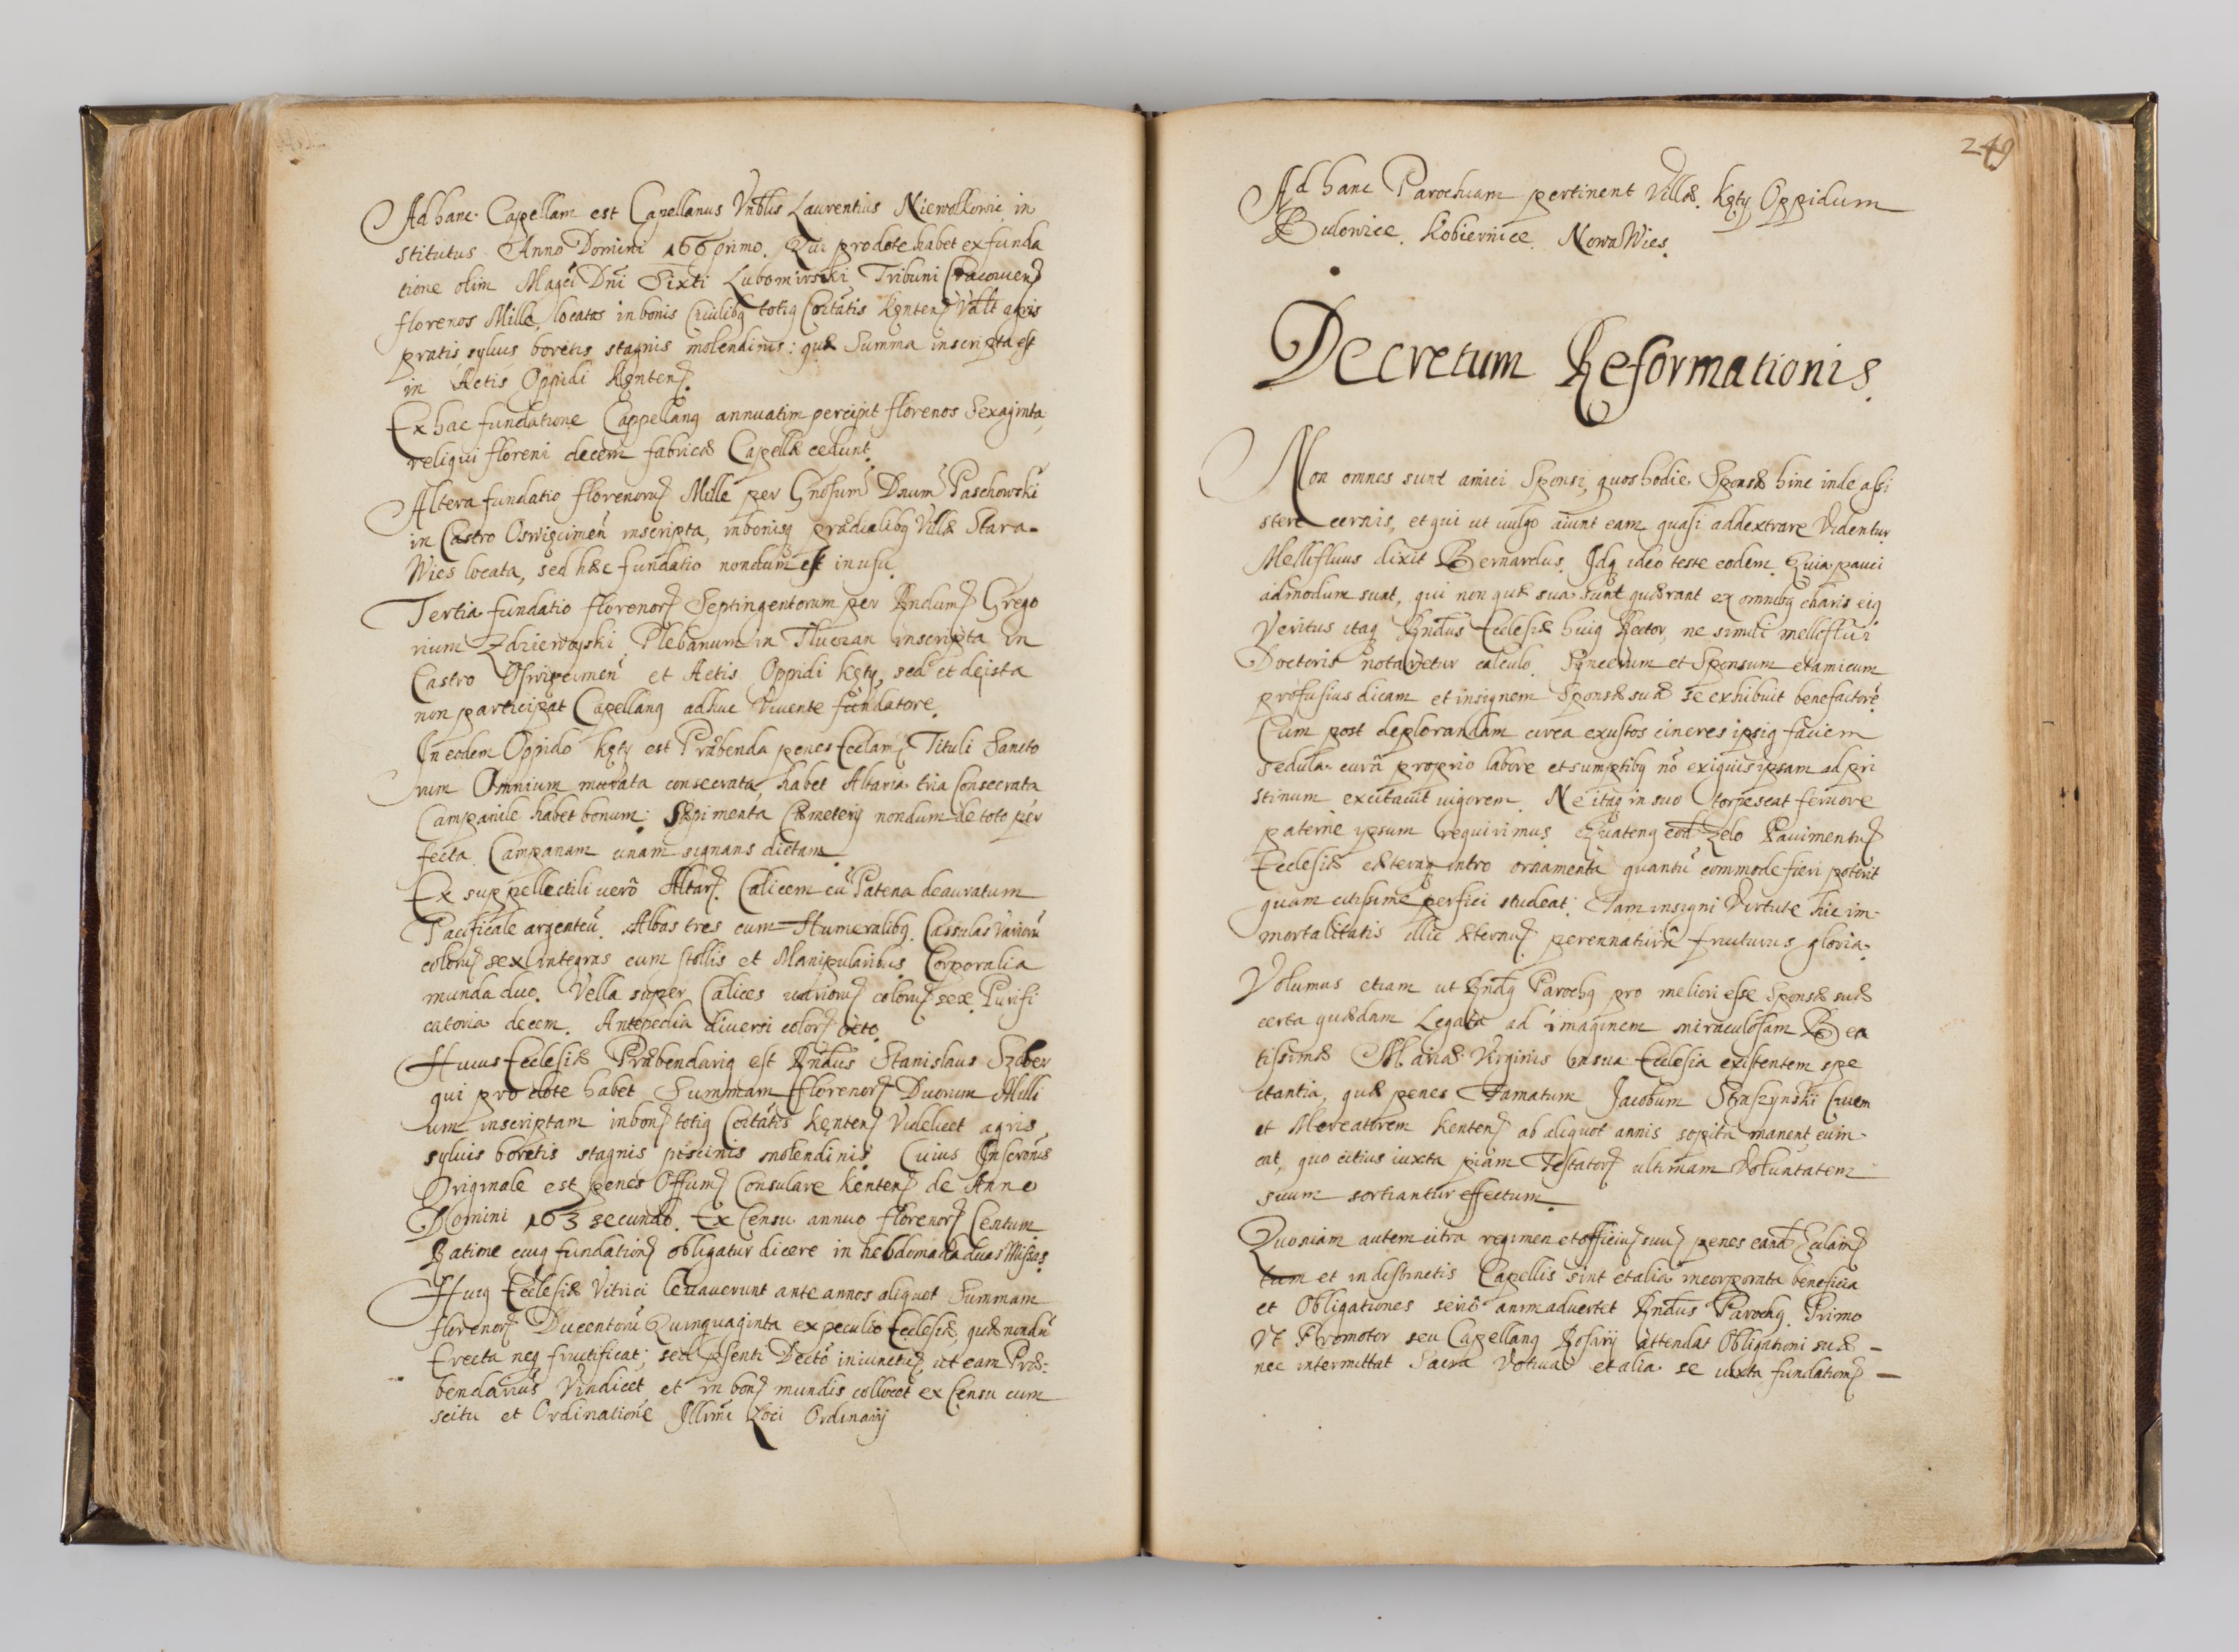 Ad hanc Capellam est Capellanus Vnblis Laurentius Niewolkowic in
stitutus Anno Domini 166 primo. Qui pro dote habet ex funda
tione olim Magci Dni Sixti Lubomirski Tribuni Cracouien
florenos Mille, locatos in bonis Ciuilibq totiq Ciuitatis Kęnten Vtlt agris
pratis syluis boretis stagnis molendinis: quæ Summa inscripta est
in Actis Oppidi Kęnten.
Ex hac fundatione Cappellanq annuatim percipit florenos Sexaginta,
reliqui floreni decem fabricæ Capellæ cedunt.
Altera fundatio florenorum Mille per Gnosum Dnum Paschowski
in Castro Oswięcimen inscripta, in bonisq prædialibq Villæ Stara-
Wies locata, sed hæc fundatio nondum est in usu.
Tertia fundatio florenor Septingentorum per Rndum Grego
rium Zdziewoyski Plebanum in Tluczan inscripta in
Castro Oswięcimen et Actis Oppidi Kęty, sed et de ista
non participat Capellanq adhuc Viuente fundatore.
In eodem Oppido Kęty est Præbenda penes Ecclam Tituli Sancto
rum Omnium murata consecrata, habet Altaria tria Consecrata
Campanile habet bonum: Sepimenta Cæmeterij nondum de toto per
fecta. Campanam unam signans dictam.
Ex suppellectili verò Altar. Calicem cũ Patena deauratum
Pacificale argenteũ. Albas tres cum Humeralibq. Cassulas Variorũ
colorum sex integras cum stollis et Manipularibus. Corporalia
munda duo. Vella super Calices uariorum colorum sex. Purifi
catoria decem. Antepedia diuersi color octo.
Huius Ecclesiæ Præbendariq est Rndus Stanislaus Szober
qui pro dote habet Summam florenor Duorum Milli
um inscriptam in bon totiq Ciuitatis Kęnten Videlicet agris,
syluis boretis stagnis piscinis molendinis. Cuius Inscronis
Originale est penes Offum Consulare Kenten de Anno
Domini 163 secundo. Ex Censu annuo florenor Centum
Ratione cuiq fundation obligatur dicere in hebdomada duas Missas.
Huiq Ecclesiæ Vitrici leuauerunt ante annos aliquot Summam
florenor Ducentorũ Quinquaginta ex peculio Ecclesiæ, quæ nondũ
Erecta neq fructificat; sed psenti Dectõ iniunctum, ut eam Præ:
bendarius Vindicet et in bon mundis collocet ex Censu cum
scitu et Ordinatione Illmi Loci Ordinarij
249
Ad hanc Parochiam pertinent Villæ. Kęty Oppidum
Bulowice. Kobiernice. Nowa Wies.
Decretum Reformationis.
Non omnes sunt amici Sponsi, quos hodie Sponsæ hinc inde assi
stere cernis, et qui ut uulgo aiunt eam quasi addextrare Videntur.
Mellifluus dixit Bernardus. Idq ideo teste eodem. Quia pauci
admodum sunt, qui non quæ sua sunt quærant ex omnibq charis eiq
Veritus itaq Rndus Ecclesiæ huiq Rector, ne simili melleflui
Doctoris notaretur calculo. Syncerum et Sponsum et amicum
profusius dicam et insignem Sponsæ suæ se exhibuit benefactorẽ.
Cum post deplorandam circa exustos cineres ipsiq faciem
sedula curâ proprio labore et sumptibq nõ exiguis ipsam ad pri
stinum excitauit uigorem. Ne itaq in suo torpescat feruore
paterne ipsum requirimus. Quatenq eod Zelo Pauimentum
Ecclesiæ exteraq intro ornamenta quantũ commode fieri poterit
quam citissime perfici studeat. Tam insigni Virtute hic im-
mortalitatis illic æternum perennaturâ fruiturus gloria.
Volumus etiam ut Rndq Parochq pro meliori esse Sponsæ suæ
certa quædam Legata ad imaginem miraculosam Bea
tissimæ Mariæ Virginis in sua Ecclesia existentem spe
ctantia, quæ penes Famatum Jacobum Straszynski Ciuem
et Mercatorem Kenten ab aliquot annis sopita manent euin-
cat, quo citius iuxta piam Testator ultimam Voluntatem
suum sortiantur effectum.
Quoniam autem citra regimen et officium suum penes eand Ecclam
tum et in distinctis Capellis sint et alia incorporata beneficia
et Obligationes seriò animaduertet Rndus Parochq. Primo
Vt Promotor seu Capellanq Rosarij attendat Obligationi suæ -
nec intermittat Sacra Votiua et alia se iuxta fundation -